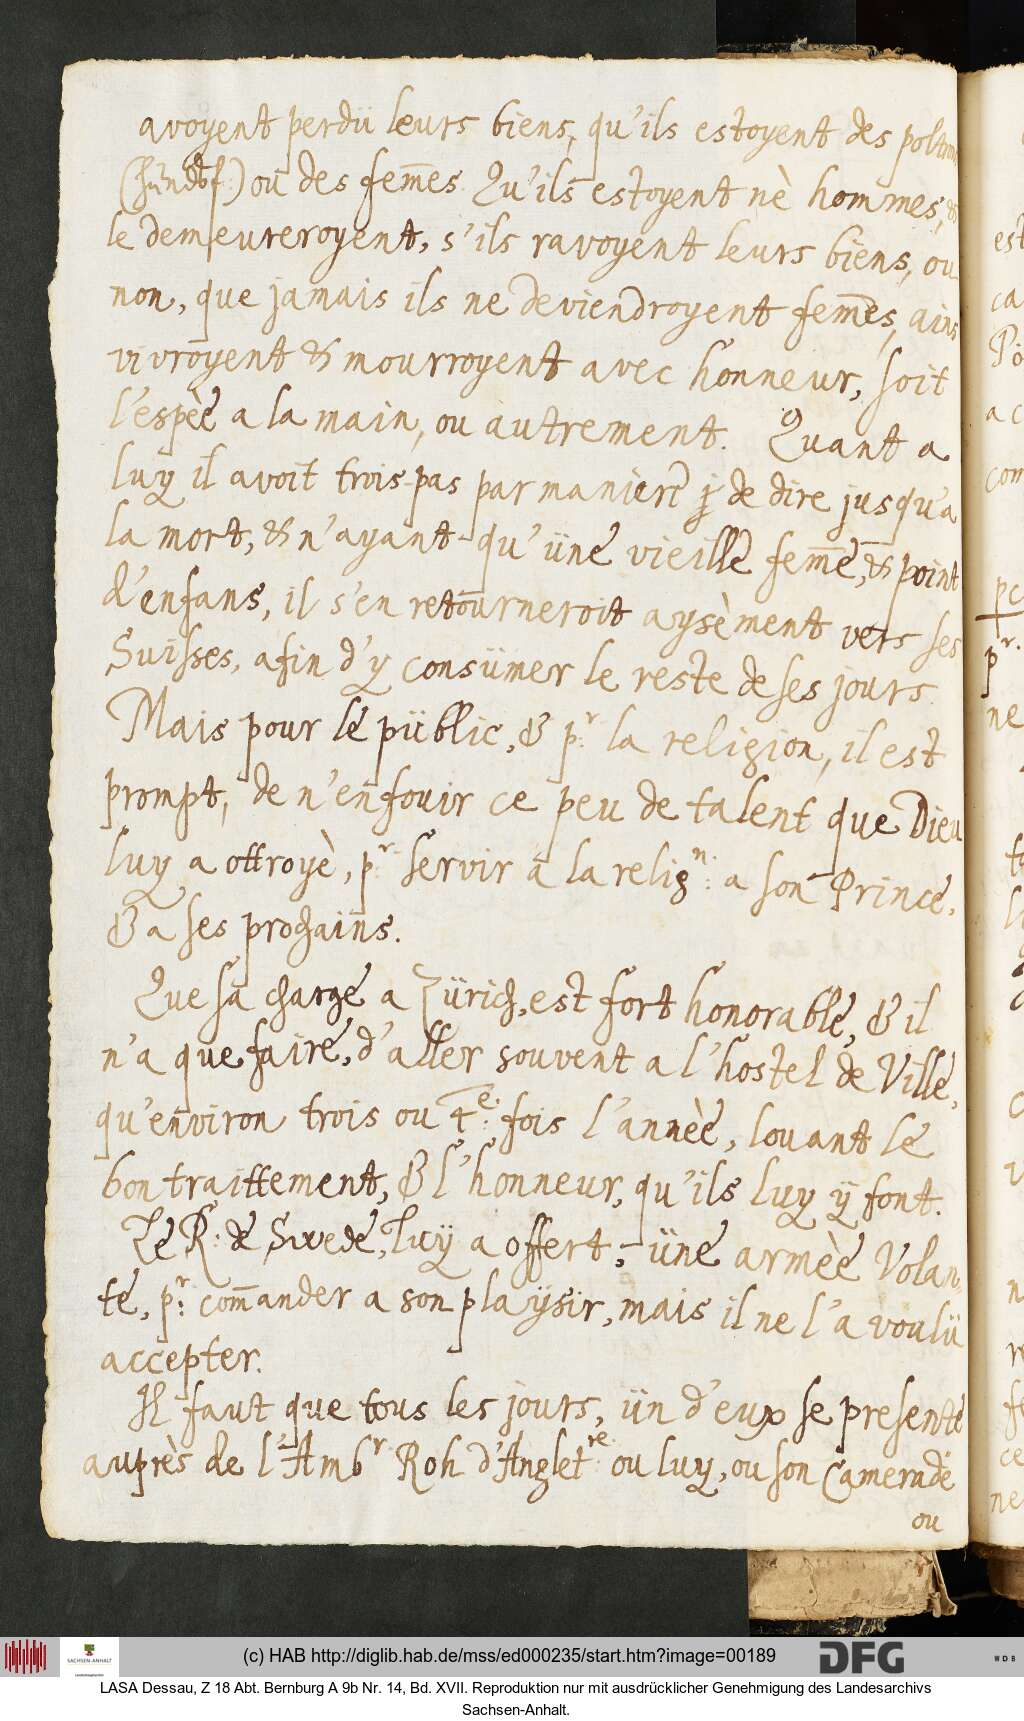 avoyent perdü leurs biens, qu'ils estoyent des poltrons
(hundtsf:) ou des fem̅es. Qu'ils estoyent nè hommes, &
le demeureroyent, s'ils ravoyent leurs biens, ou
non, que jamais ils ne deviendroyent fem̅es, ains
vivroyent & mourroyent avec honneur, soit
l'espèe a la main, ou autrement. Quant a
luy il avoit trois pas par maniere de dire jusqu'a
la mort, & n'ayant qu'üne vieille fem̅e, & point
d'enfans, il s'en retourneroit aysèment vers ses
Suisses, afin d'y consümer le reste de ses jours.
Mais pour le püblic, & pr: la religion, il est
prompt, de n'enfouir ce peu de talent que Dieu
luy a ottroyè, pr: servir a la relign: a son Prince,
& a ses prochains.
Que sa charge a Zürich, est fort honorable, & il
n'a que faire, d'aller souvent a l'hostel de Ville,
qu'environ trois ou 4e: fois l'annèe, louant le
bon traittement, & l'honneur, qu'ils luy ÿ font.
Le R: de Swede, luÿ a offert, üne armèe Volan-
te, pr: com̅ander a son playsir, mais il ne l'a voulü
accepter.
Il faut que tous les jours, ün d'eux se presente
auprès de l'Ambr Roh d'Angletre: ou luy, ou son Camerade
ou
(c) HAB http://diglib.hab.de/mss/ed000235/start.htm?image=00189
SACHSEN-ANHALT
DFG
WDB
LASA Dessau, Z 18 Abt. Bernburg A 9b Nr. 14, Bd. XVII. Reproduktion nur mit ausdrücklicher Genehmigung des Landesarchivs
Sachsen-Anhalt.